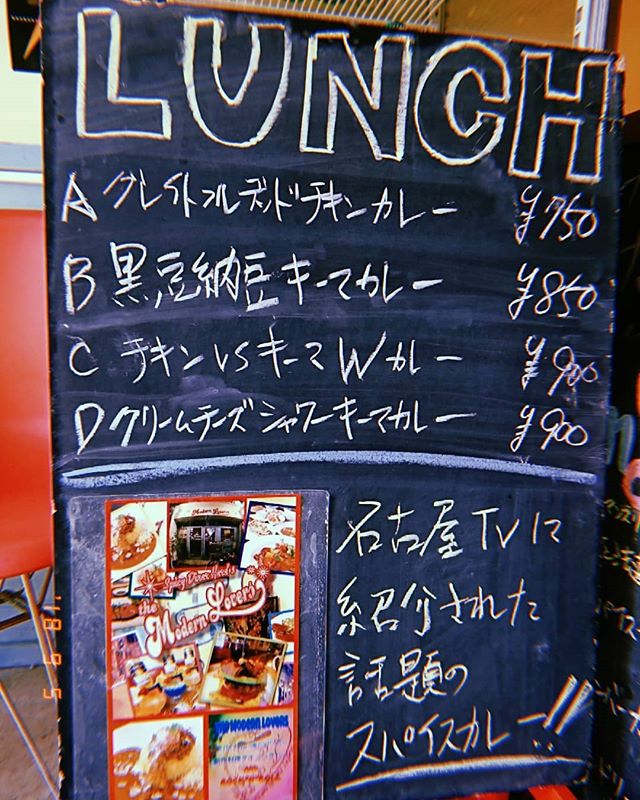 LUNCH
A グレイトフルデッドチキンカレー ¥750
B 黒豆納豆キーマカレー ¥850
C チキンVSキーマWカレー ¥900
D クリームチーズシャワーキーマカレー ¥900
名古屋TVに
紹介された
話題の
スパイスカレー!!
Modern Lovers
Spicy Diner Hard's
the
Modern Lovers
THE MODERN LOVERS